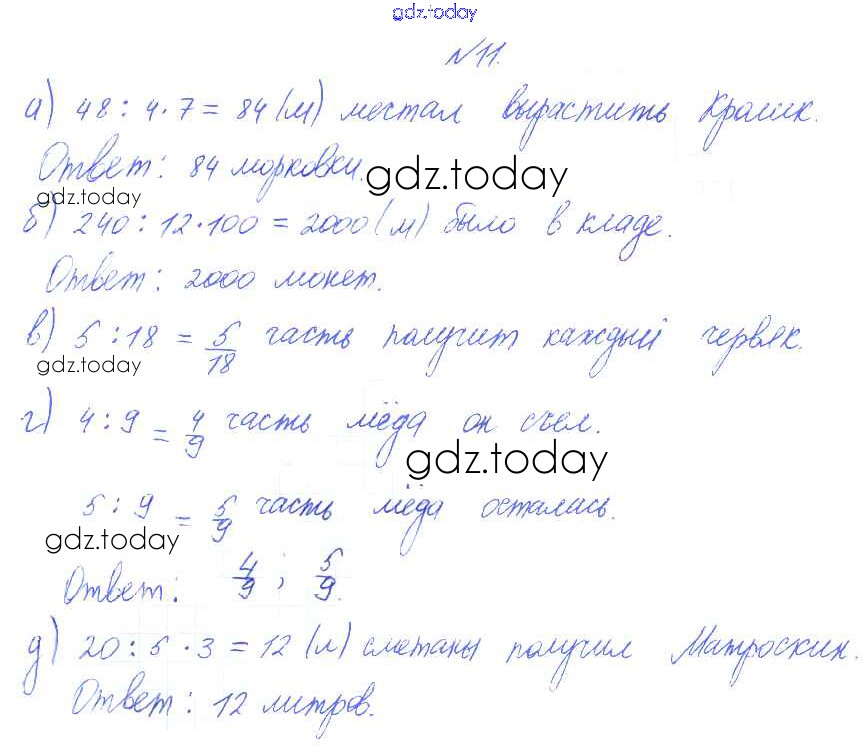 gdz.today
№11.
а) 48 : 4 · 7 = 84 (м) мечтал вырастить Кролик.
Ответ: 84 морковки.
gdz.today
gdz.today
б) 240 : 12 · 100 = 2000 (м) было в кладе.
Ответ: 2000 монет.
в) 5 : 18 = 5/18 часть получит каждый червяк.
gdz.today
г) 4 : 9 = 4/9 часть мёда он съел.
gdz.today
5 : 9 = 5/9 часть мёда осталась.
gdz.today
Ответ: 4/9 ; 5/9.
д) 20 : 5 · 3 = 12 (л) сметаны получил Матроскин.
Ответ: 12 литров.